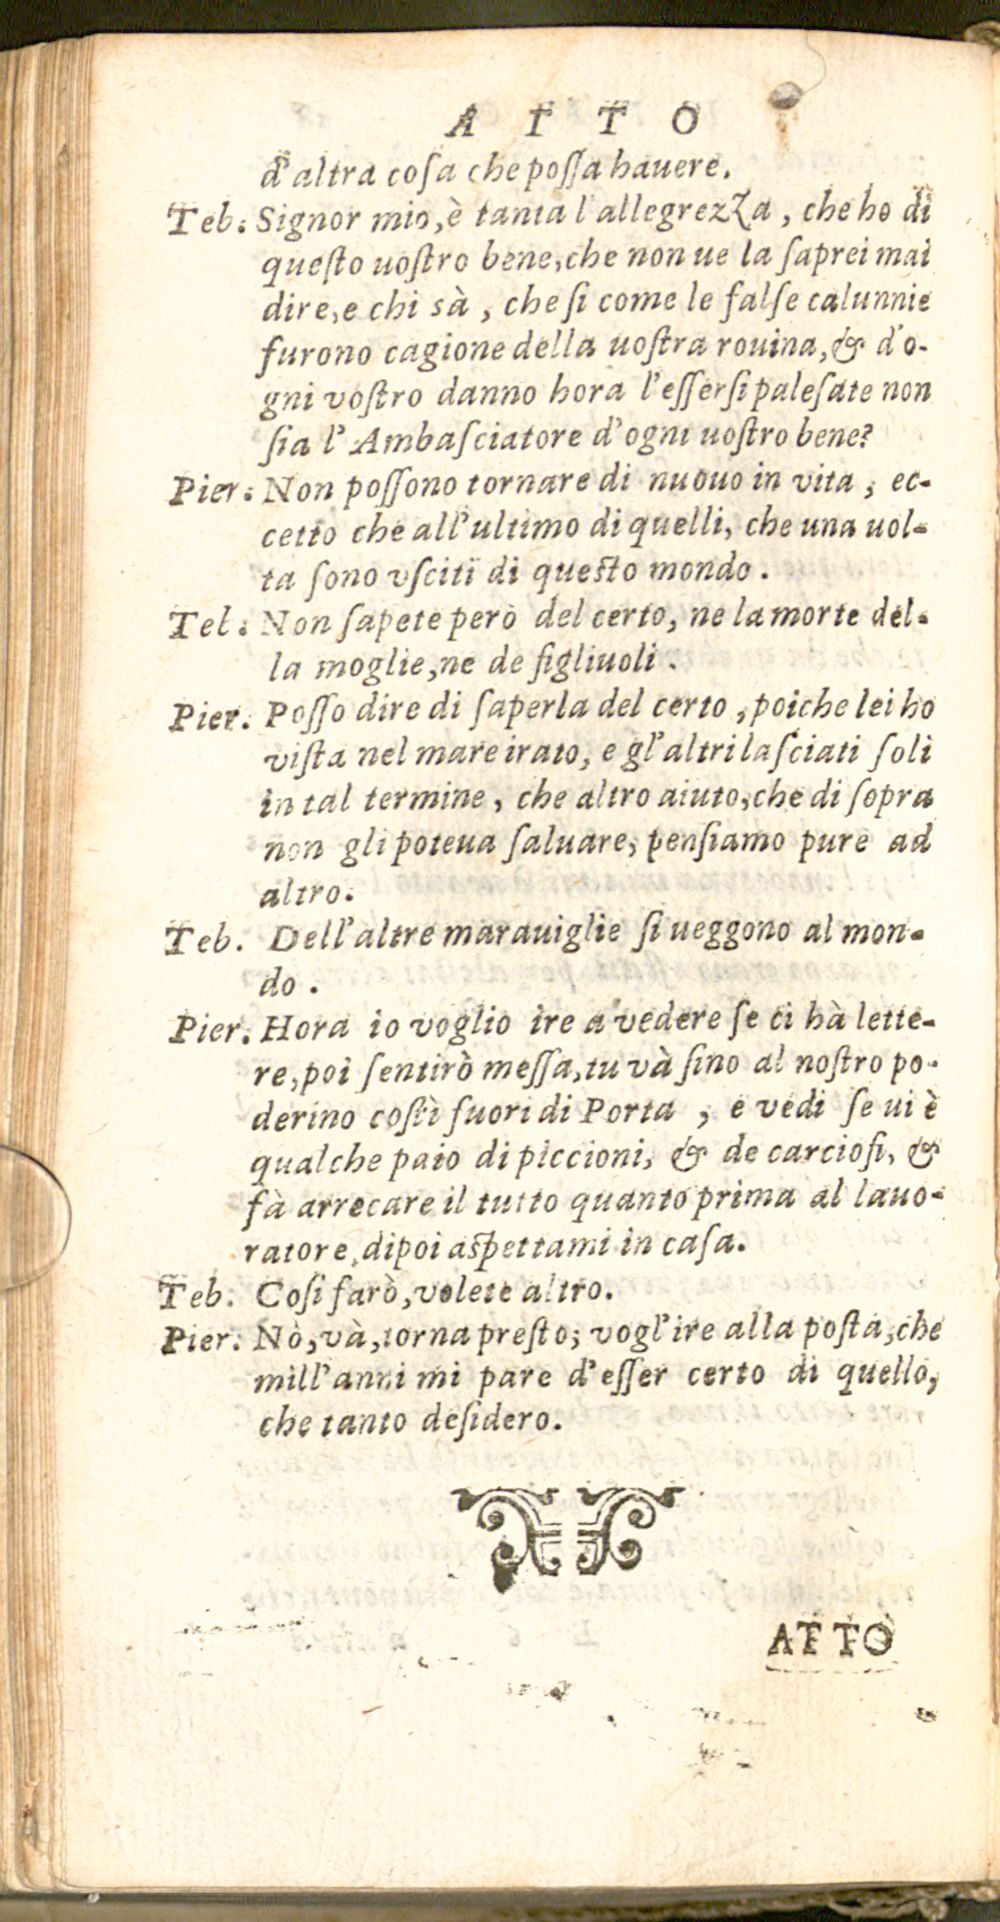 ATTO
d'altra cosa che possa hauere.
Teb. Signor mio, è tanta l'allegrezza, che ho di
questo uostro bene, che non ue la saprei mai
dire, e chi sà, che si come le false calunnie
furono cagione della uostra rouina, & d'o-
gni vostro danno hora l'essersi palesate non
sia l'Ambasciatore d'ogni uostro bene?
Pier. Non possono tornare di nuouo in vita, ec-
cetto che all'ultimo di quelli, che una uol-
ta sono vsciti di questo mondo.
Teb. Non sapete però del certo, ne la morte del-
la moglie, ne de figliuoli.
Pier. Posso dire di saperla del certo, poiche lei ho
vista nel mare irato, e gl'altri lasciati soli
in tal termine, che altro aiuto, che di sopra
non gli poteua saluare, pensiamo pure ad
altro.
Teb. Dell'altre marauiglie si ueggono al mon-
do.
Pier. Hora io voglio ire a vedere se ci hà lette-
re, poi sentirò messa, tu và sino al nostro po-
derino costì fuori di Porta, e vedi se ui è
qualche paio di piccioni, & de carciofi, &
fà arrecare il tutto quanto prima al lauo-
ratore, dipoi aspettami in casa.
Teb. Cosi farò, volete altro.
Pier. Nò, và, torna presto; vogl'ire alla posta, che
mill'anni mi pare d'esser certo di quello,
che tanto desidero.
ATTO